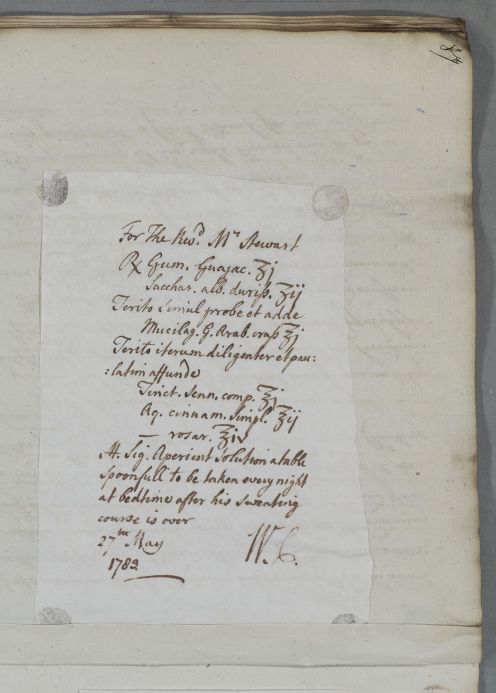 For The Revd. Mr Stewart
℞ Gum. Guajac. ʒj
Sacchar. alb. duriss. ʒij
Terito simul probe et adde
Mucilag. G. Arab. crass ʒj
Terito iterum diligenter et pau:
:latim affunde
Tinct. Senn. comp. ℥j
Aq. cinnam. simpl. ℥ij
— rosar. ℥iv
ft. Sig. Aperient solution a table
spoonfull to be taken every night
at bedtime after his sweating
course is over
27th May
1782
W. C.